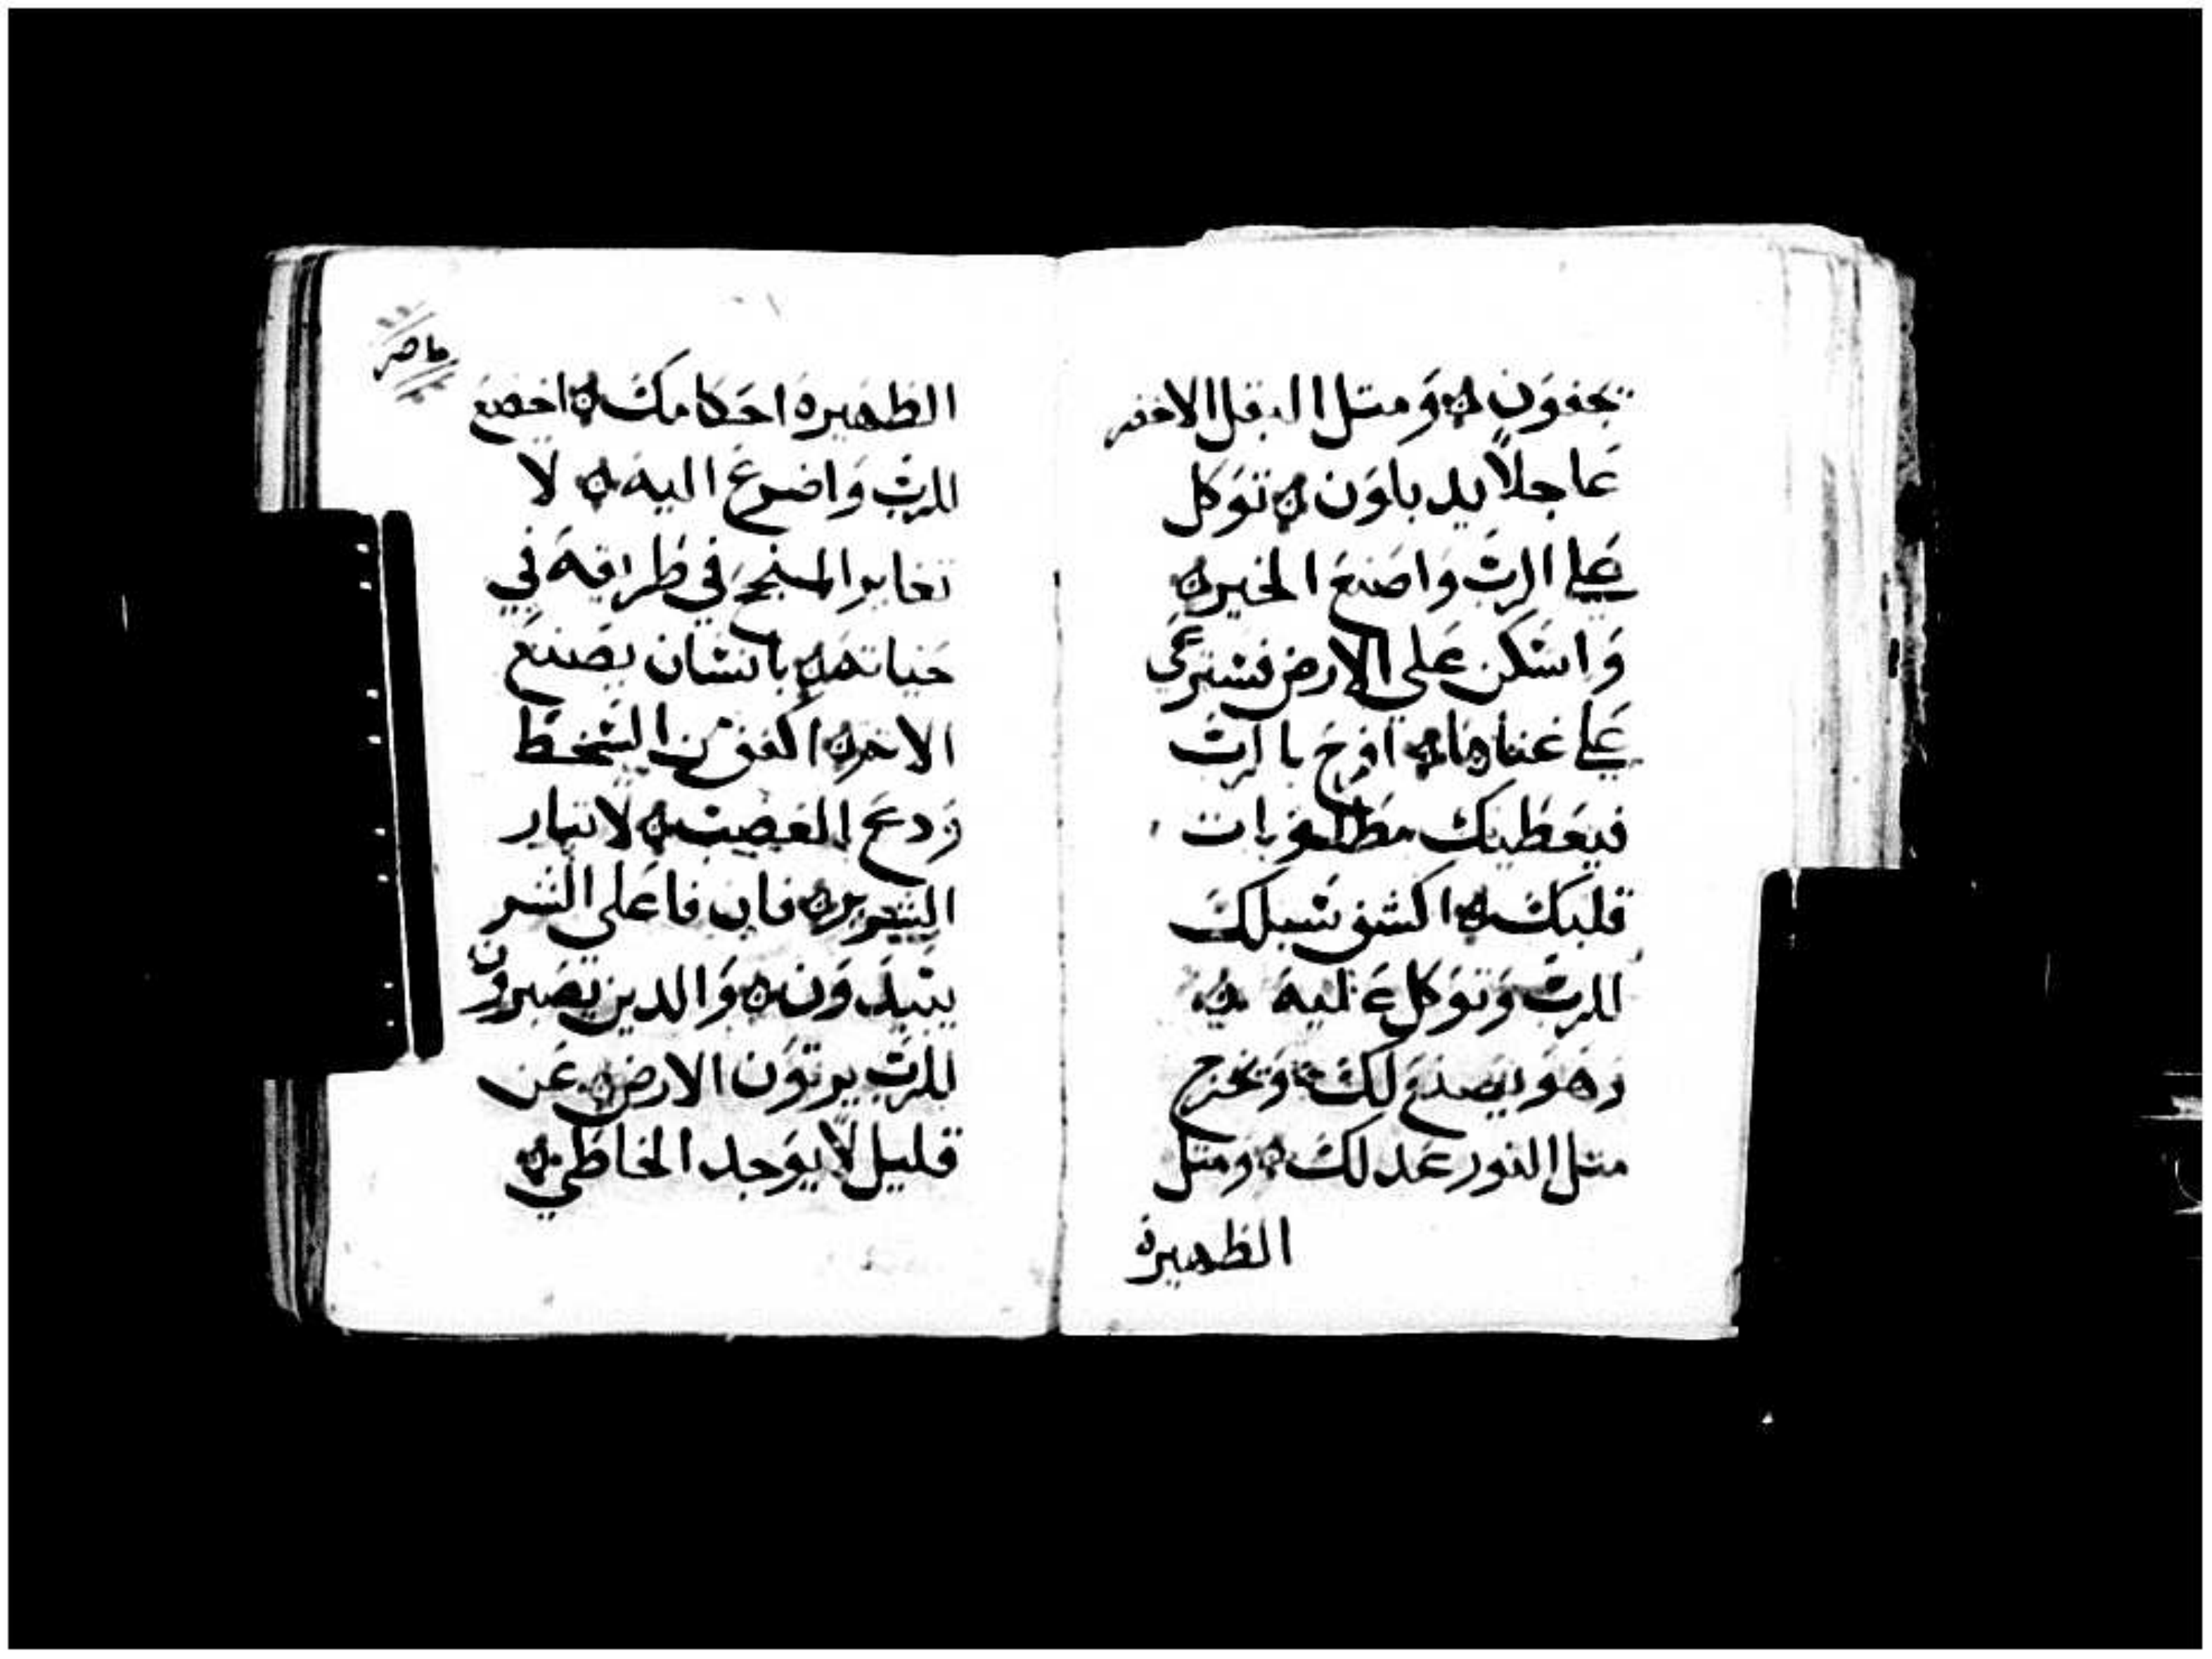 يجفون ۞ ومتل البقل الاخضر
عاجلا يدبلون ۞ توكل
علي الرب واصنع الخير ۞
واسكن على الارض فسترعي
علي غناها ۞ افرح بالرب
فيعطيك مطلوبات
قلبك ۞ اكشف سبلك
للرب وتوكل عليه ۞
وهو يصنع لك ۞ ويخرج
متل النور عدلك ۞ ومتل
الظهيرة
الظهيرة احكامك ۞ اخضع
للرب واضرع اليه ۞ لا
تغاير المنجح في طراقه في
حياته ۞ بانسان يصنع
الاتم ۞ اكفف من السخط
ودع الغضب ۞ لا تبار
الشرير ۞ فان فاعلي الشر
يبيدون ۞ والدين يصبرون
للرب يرتون الارض ۞ عن
قليل لا يوجد الخاطي ۞